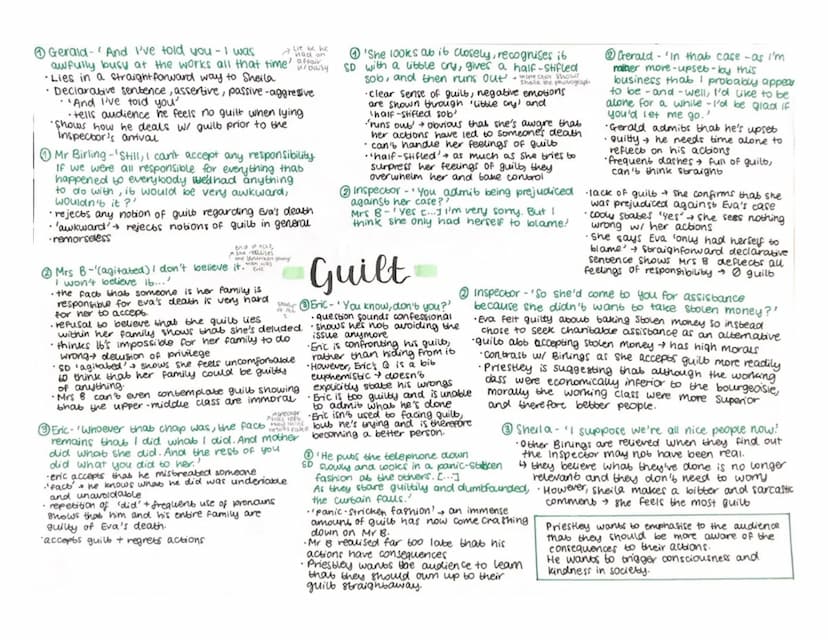 ① Gerald - 'And I've told you - I was
awfully busy at the works all that time'
· Lies in a straightforward way to Sheila
· Declarative sentence, assertive, passive-aggressive
· 'And I've told you'
· tells audience he feels no guilt when lying
· shows how he deals w/ guilt prior to the
Inspector's arrival
① Mr Birling - 'Still, I can't accept any responsibility.
If we were all responsible for everything that
happened to everybody we'd had anything
to do with, it would be very awkward,
wouldn't it?'
· rejects any notion of guilt regarding Eva's death
· 'awkward' → rejects notions of guilt in general
· remorseless
② Mrs B - '(agitated) I don't believe it.
I won't believe it...'
· the fact that someone is her family is
responsible for Eva's death is very hard
for her to accept.
· refusal to believe that the guilt lies
within her family shows that she's deluded
· thinks it's impossible for her family to do
wrong → delusion of privilege
· SD 'agitated' → shows she feels uncomfortable
to think that her family could be guilty
of anything.
· Mrs B can't even contemplate guilt showing
that the upper-middle class are immoral
③ Eric - 'Whoever that chap was, the fact
remains that I did what I did. And mother
did what she did. And the rest of you
did what you did to her.'
· eric accepts that he mistreated someone
· 'fact' → he knows what he did was undeniable
and unavoidable
· repetition of 'did' + frequent use of pronouns
shows that him and his entire family are
guilty of Eva's death.
· accepts guilt + regrets actions
① 'She looks at it closely, recognises it
SD with a little cry, gives a half-stifled
sob, and then runs out'
· clear sense of guilt, negative emotions
are shown through 'little cry' and
'half-stifled sob'
· 'runs out' → obvious that she's aware that
her actions have led to someone's death
· can't handle her feelings of guilt
· 'half-stifled' → as much as she tries to
surpress her feelings of guilt, they
overwhelm her and take control
② Inspector - 'You admit being prejudiced
against her case?'
Mrs B - 'Yes [...] I'm very sorry. But I
think she only had herself to blame'
Guilt
③ Eric - 'You know, don't you?'
· question sounds confessional
· shows he's not avoiding the
issue anymore
· Eric is confronting his guilt,
rather than hiding from it
· However, Eric's Q is a bit
euphemistic → doesn't
explicitly state his wrongs
· Eric is too guilty and is unable
to admit what he's done
· Eric isn't used to facing guilt,
but he's trying and is therefore
becoming a better person.
③ 'He puts the telephone down
SD slowly and looks in a panic-stricken
fashion at the others. [...]
As they stare guiltily and dumbfounded,
the curtain falls.'
· 'panic-stricken fashion' → an immense
amount of guilt has now come crashing
down on Mr B.
· Mr B realised far too late that his
actions have consequences
· Priestley wants the audience to learn
that they should own up to their
guilt straightaway.
② Gerald - 'In that case - as I'm
rather more - upset - by this
business than I probably appear
to be - and - well, I'd like to be
alone for a while - I'd be glad if
you'd let me go.'
· Gerald admits that he's upset
· guilty → he needs time alone to
reflect on his actions
· frequent dashes → full of guilt,
can't think straight
· lack of guilt → she confirms that she
was prejudiced against Eva's case
· coldly states 'yes' → she sees nothing
wrong w/ her actions
· She says Eva 'only had herself to
blame' → straightforward declarative
sentence shows Mrs B deflects all
feelings of responsibility → 0 guilt
② Inspector - 'So she'd come to you for assistance
because she didn't want to take stolen money?'
· Eva felt guilty about taking stolen money so instead
chose to seek charitable assistance as an alternative
· guilt abt accepting stolen money → has high morals
· Contrast w/ Birlings as she accepts guilt more readily
· Priestley is suggesting that although the working
class were economically inferior to the bourgeoisie,
morally the working class were more superior
and therefore better people.
③ Sheila - 'I suppose we're all nice people now.'
· Other Birlings are relieved when they find out
the Inspector may not have been real.
↳ they believe what they've done is no longer
relevant and they don't need to worry
· However, Sheila makes a bitter and sarcastic
comment → she feels the most guilt
Priestley wants to emphasise to the audience
that they should be more aware of the
consequences to their actions.
He wants to trigger consciousness and
kindness in society.